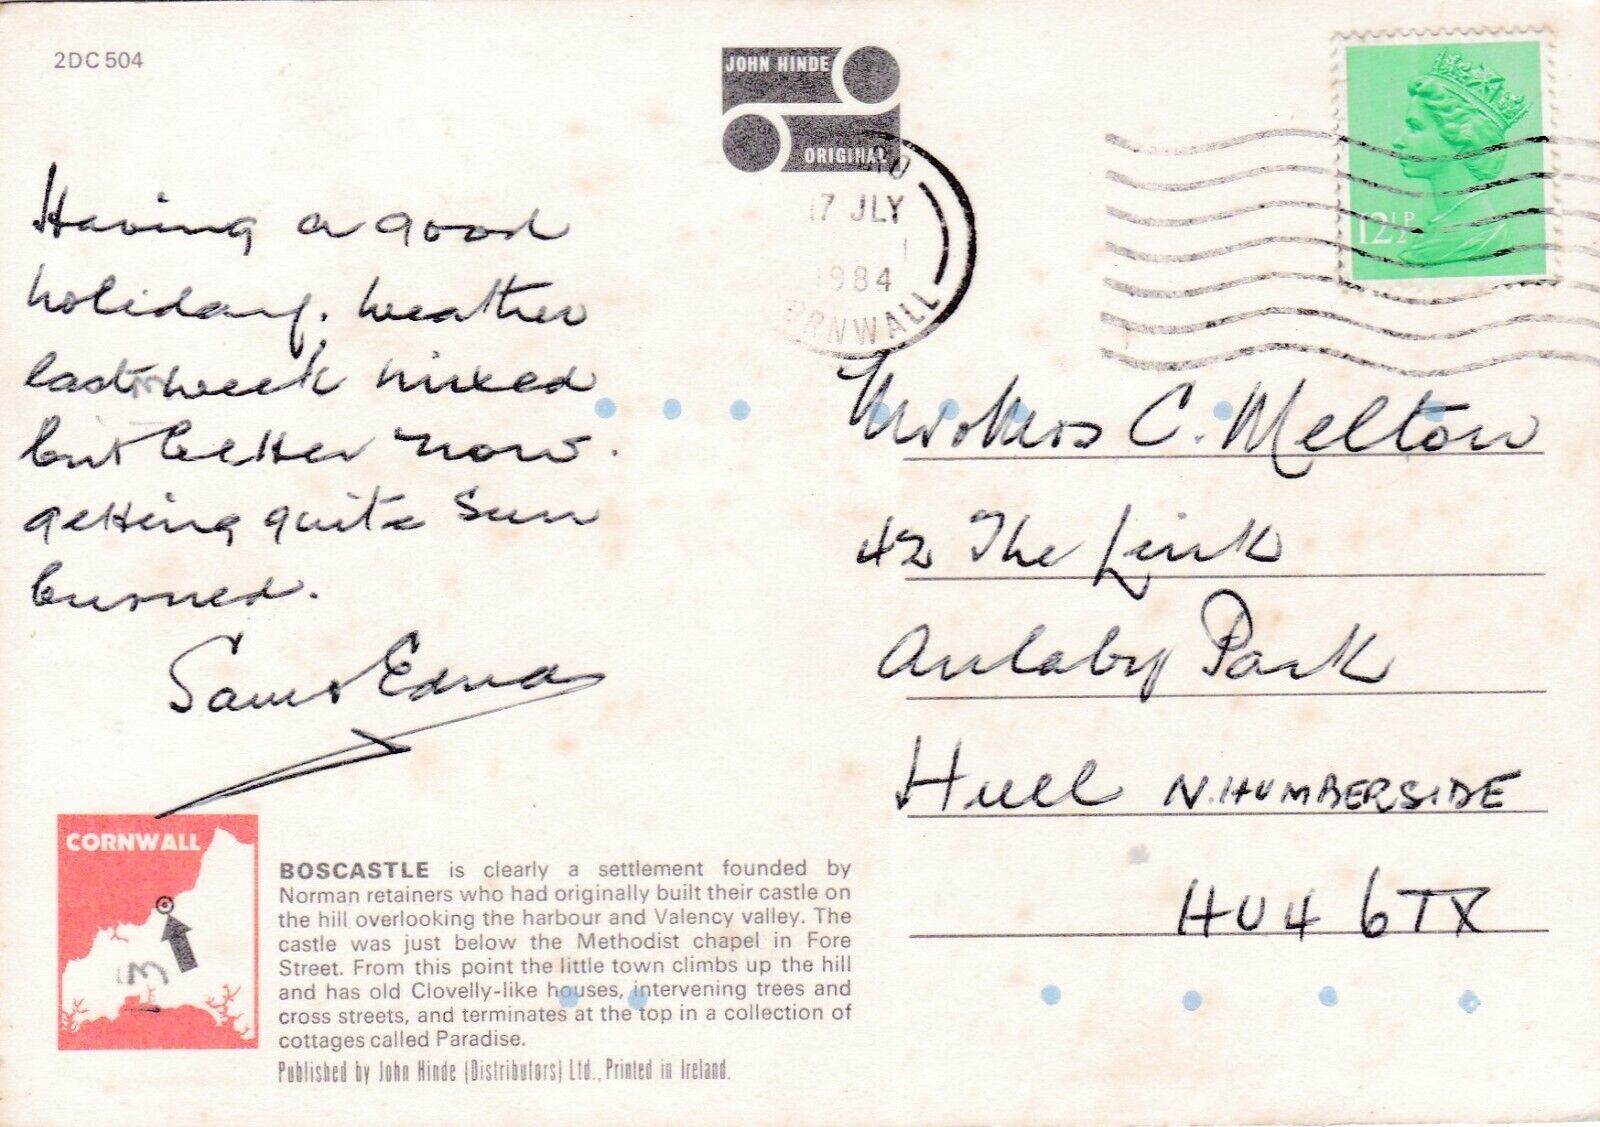 2DC504
JOHN HINDE
ORIGINAL
17 JLY
1984
ORNWALL
12½P
Having a good
holiday. Weather
last week mixed
but better now.
getting quite sun
burned.
Sam & Edna
Mr & Mrs C. Melton
42 The Link
Anlaby Park
Hull N. HUMBERSIDE
HU4 6TX
CORNWALL
BOSCASTLE is clearly a settlement founded by
Norman retainers who had originally built their castle on
the hill overlooking the harbour and Valency valley. The
castle was just below the Methodist chapel in Fore
Street. From this point the little town climbs up the hill
and has old Clovelly-like houses, intervening trees and
cross streets, and terminates at the top in a collection of
cottages called Paradise.
Published by John Hinde (Distributors) Ltd., Printed in Ireland.